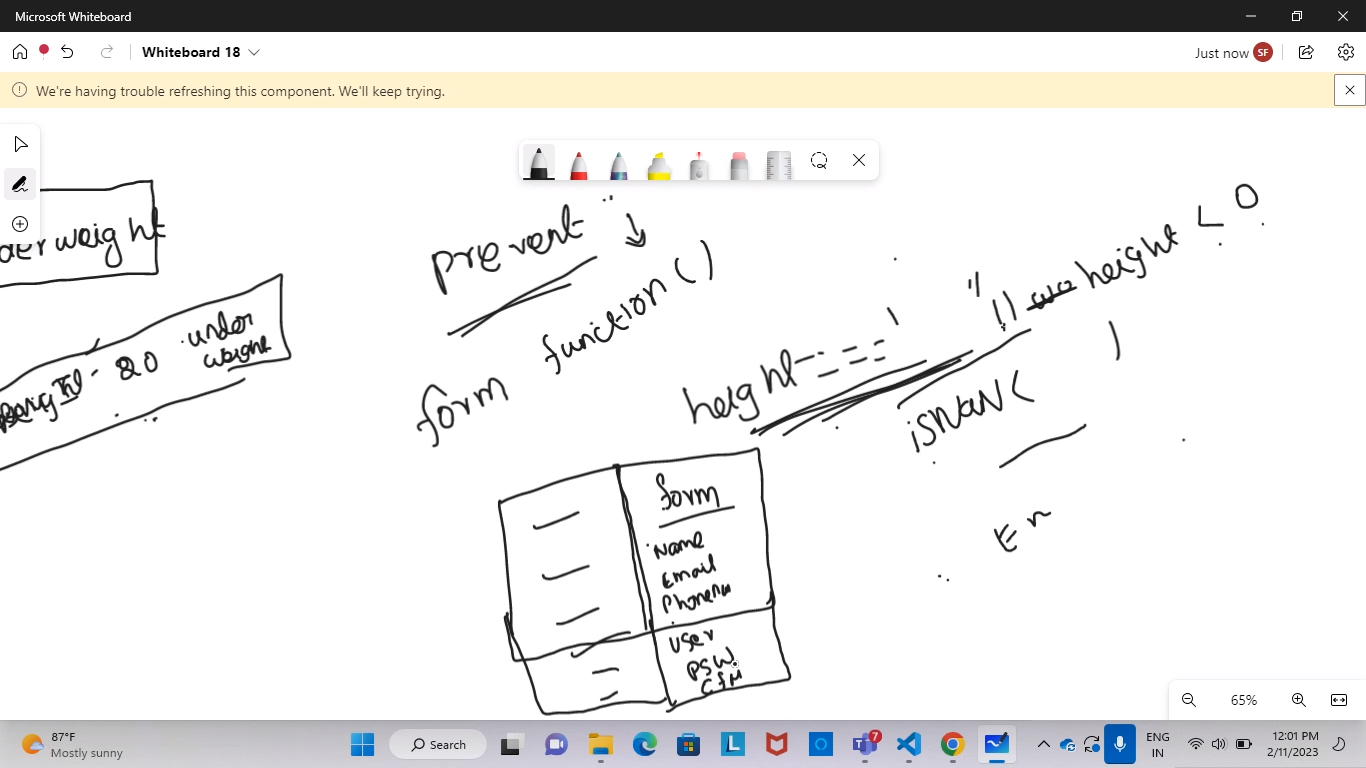 Microsoft Whiteboard
Whiteboard 18
Just now SF
We're having trouble refreshing this component. We'll keep trying.
weight
20 under
weight
prevent
form function()
height === ' ' || height < 0
isNaN( )
Er
form
Name
Email
User
PSW
CfM
65%
87°F
Mostly sunny
Search
7
ENG
IN
12:01 PM
2/11/2023